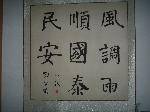 風調雨
順國泰
民安